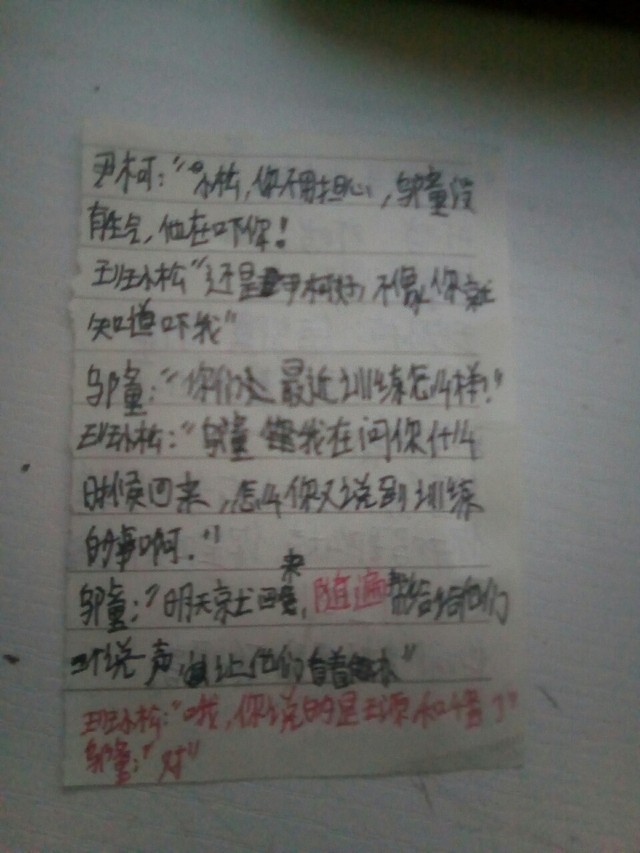 尹柯:“小松,你不用担心,邬童没
有生气,他在吓你!
班小松“还是尹柯好,不像你就
知道吓我”
邬童:“你们 最近训练怎么样?”
班小松:“邬童 我在问你什么
时候回来,怎么你又说到训练
的事啊.”
邬童:“明天就回来,随遍帮 给他们
说一声, 让他们
班小松:“哦,你说的是王源和
邬童:“对”